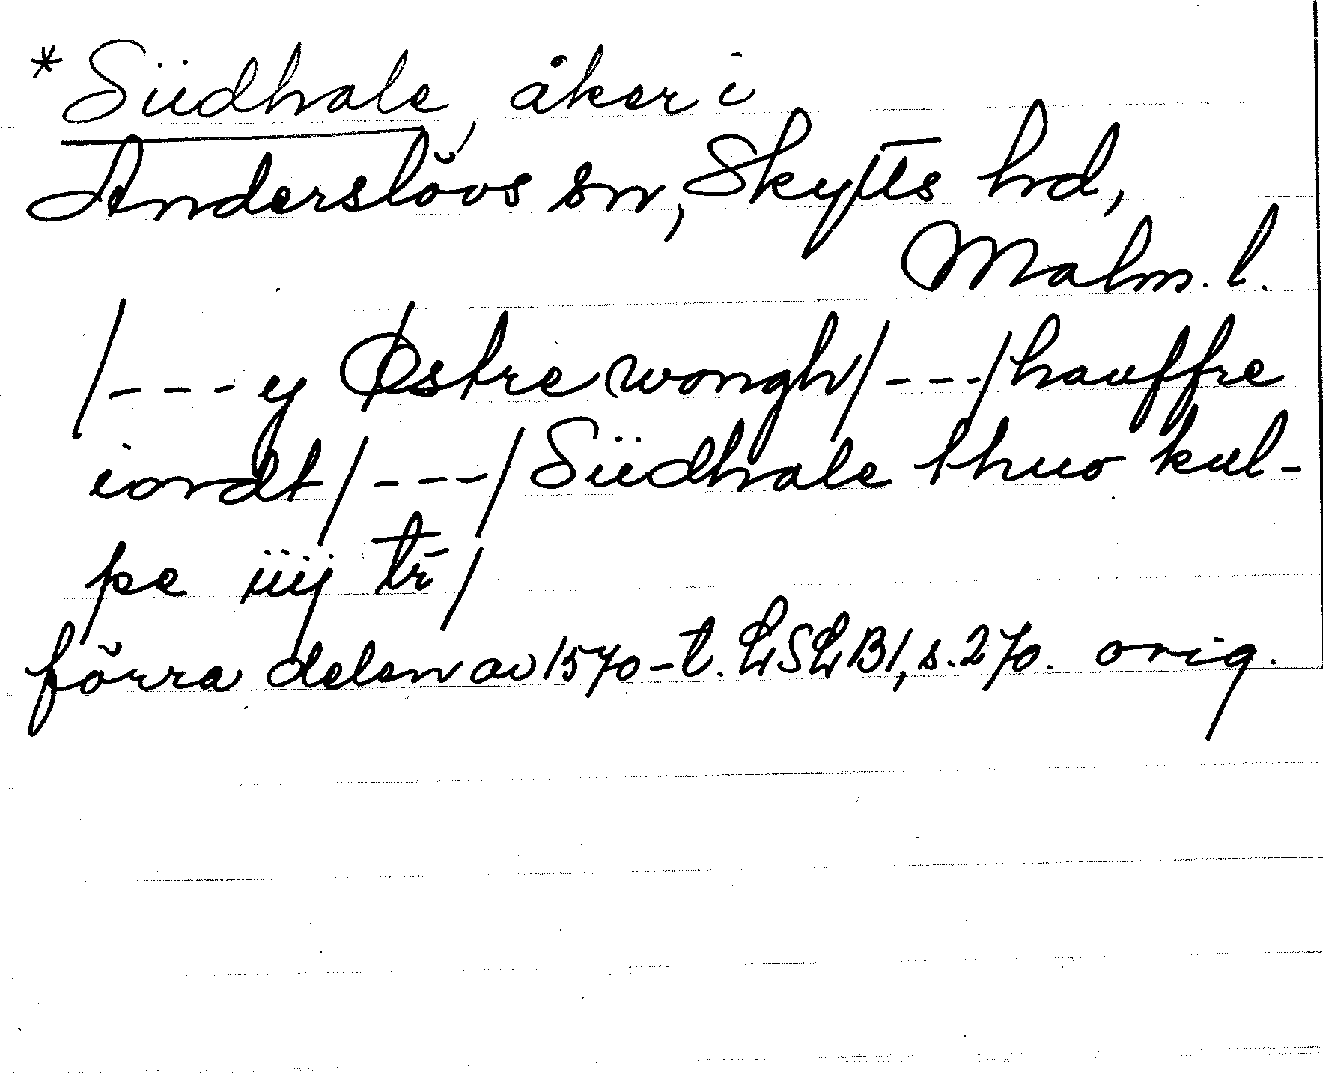 *Siidhale, åker i
Anderslövs sn, Skytts hd,
Malm. l.
/---y Østre wongh/---/hauffre
iordt/---/Siidhale thuo kul-
pe iiij tr̄/
förra delen av 1570-t. LSLB1, s. 270. orig.